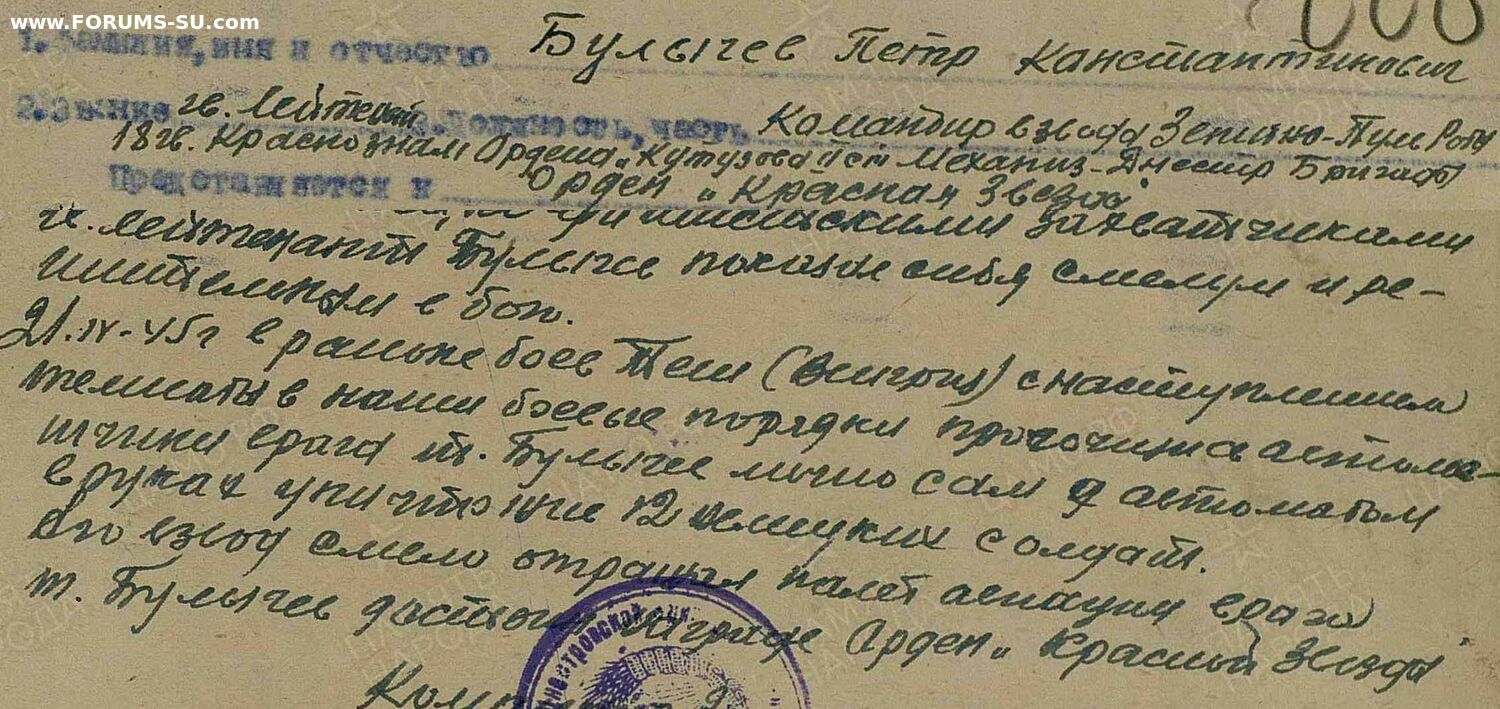 www.FORUMS-SU.com
1. Фамилия, имя и отчество Булычев Петр Канстантинович
2. Звание гв. Лейтенант 3. Должность, часть Командир взвода Зенитно-Пул Роты
18 гв. Краснознам Ордена „Кутузова II ст Механиз-Днестр Бригады
Представляется к Орден „Красная Звезда"
захватчиками
гв. лейтенант Булычев показал себя смелым и ре-
шительным в бою.
21.IV-45г в районе боев Теш (Венгрия) с наступлением
темноты в наши боевые порядки просочились автомат-
чики врага т. Булычев лично сам с автоматом
в руках уничтожил 12 немецких солдат.
Его взвод смело отразил налет авиации врага
т. Булычев достоин Орден „Красной Звезды"